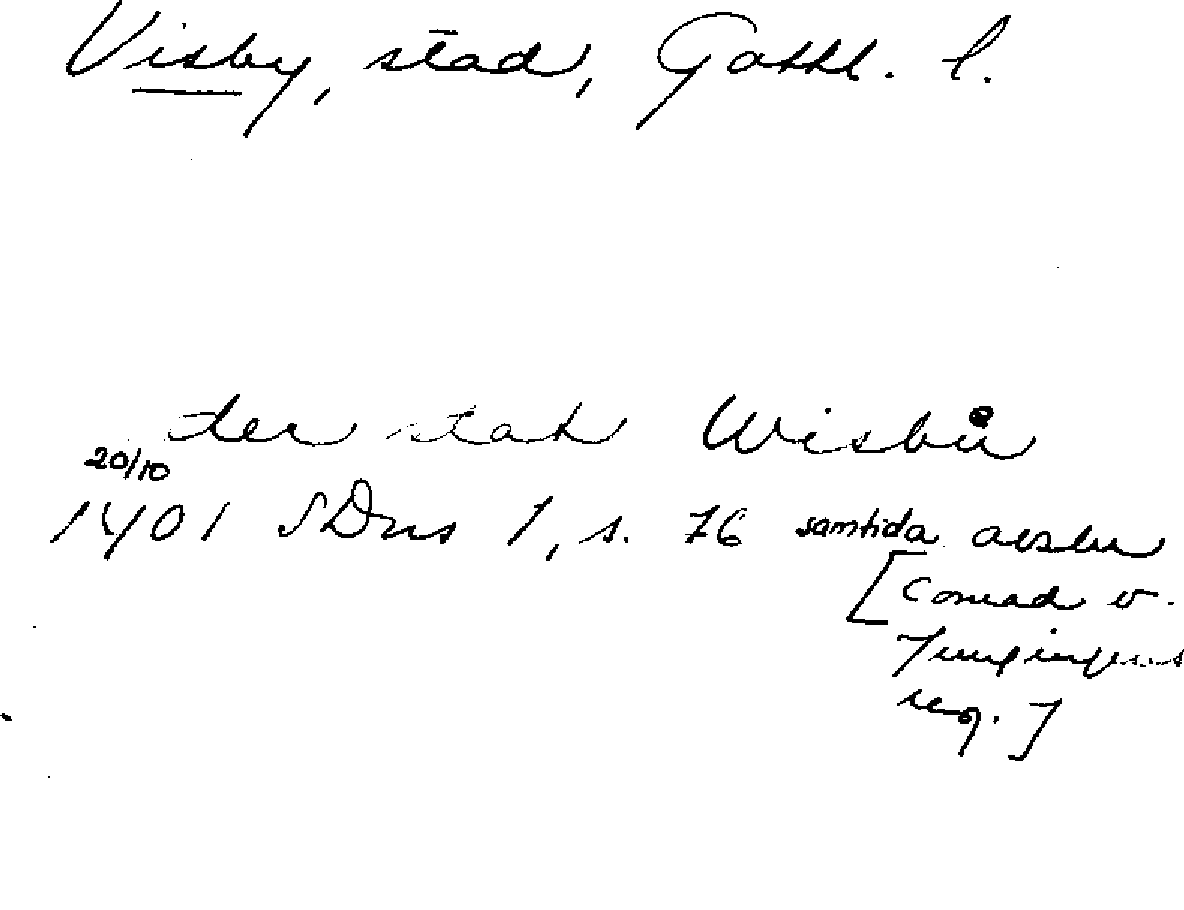 Visby, stad, Gottl. l.
der stat Wisbů
20/10
1401 SDns 1, s. 76 samtida avskr
[Conrad v.
Jungingens
reg.]